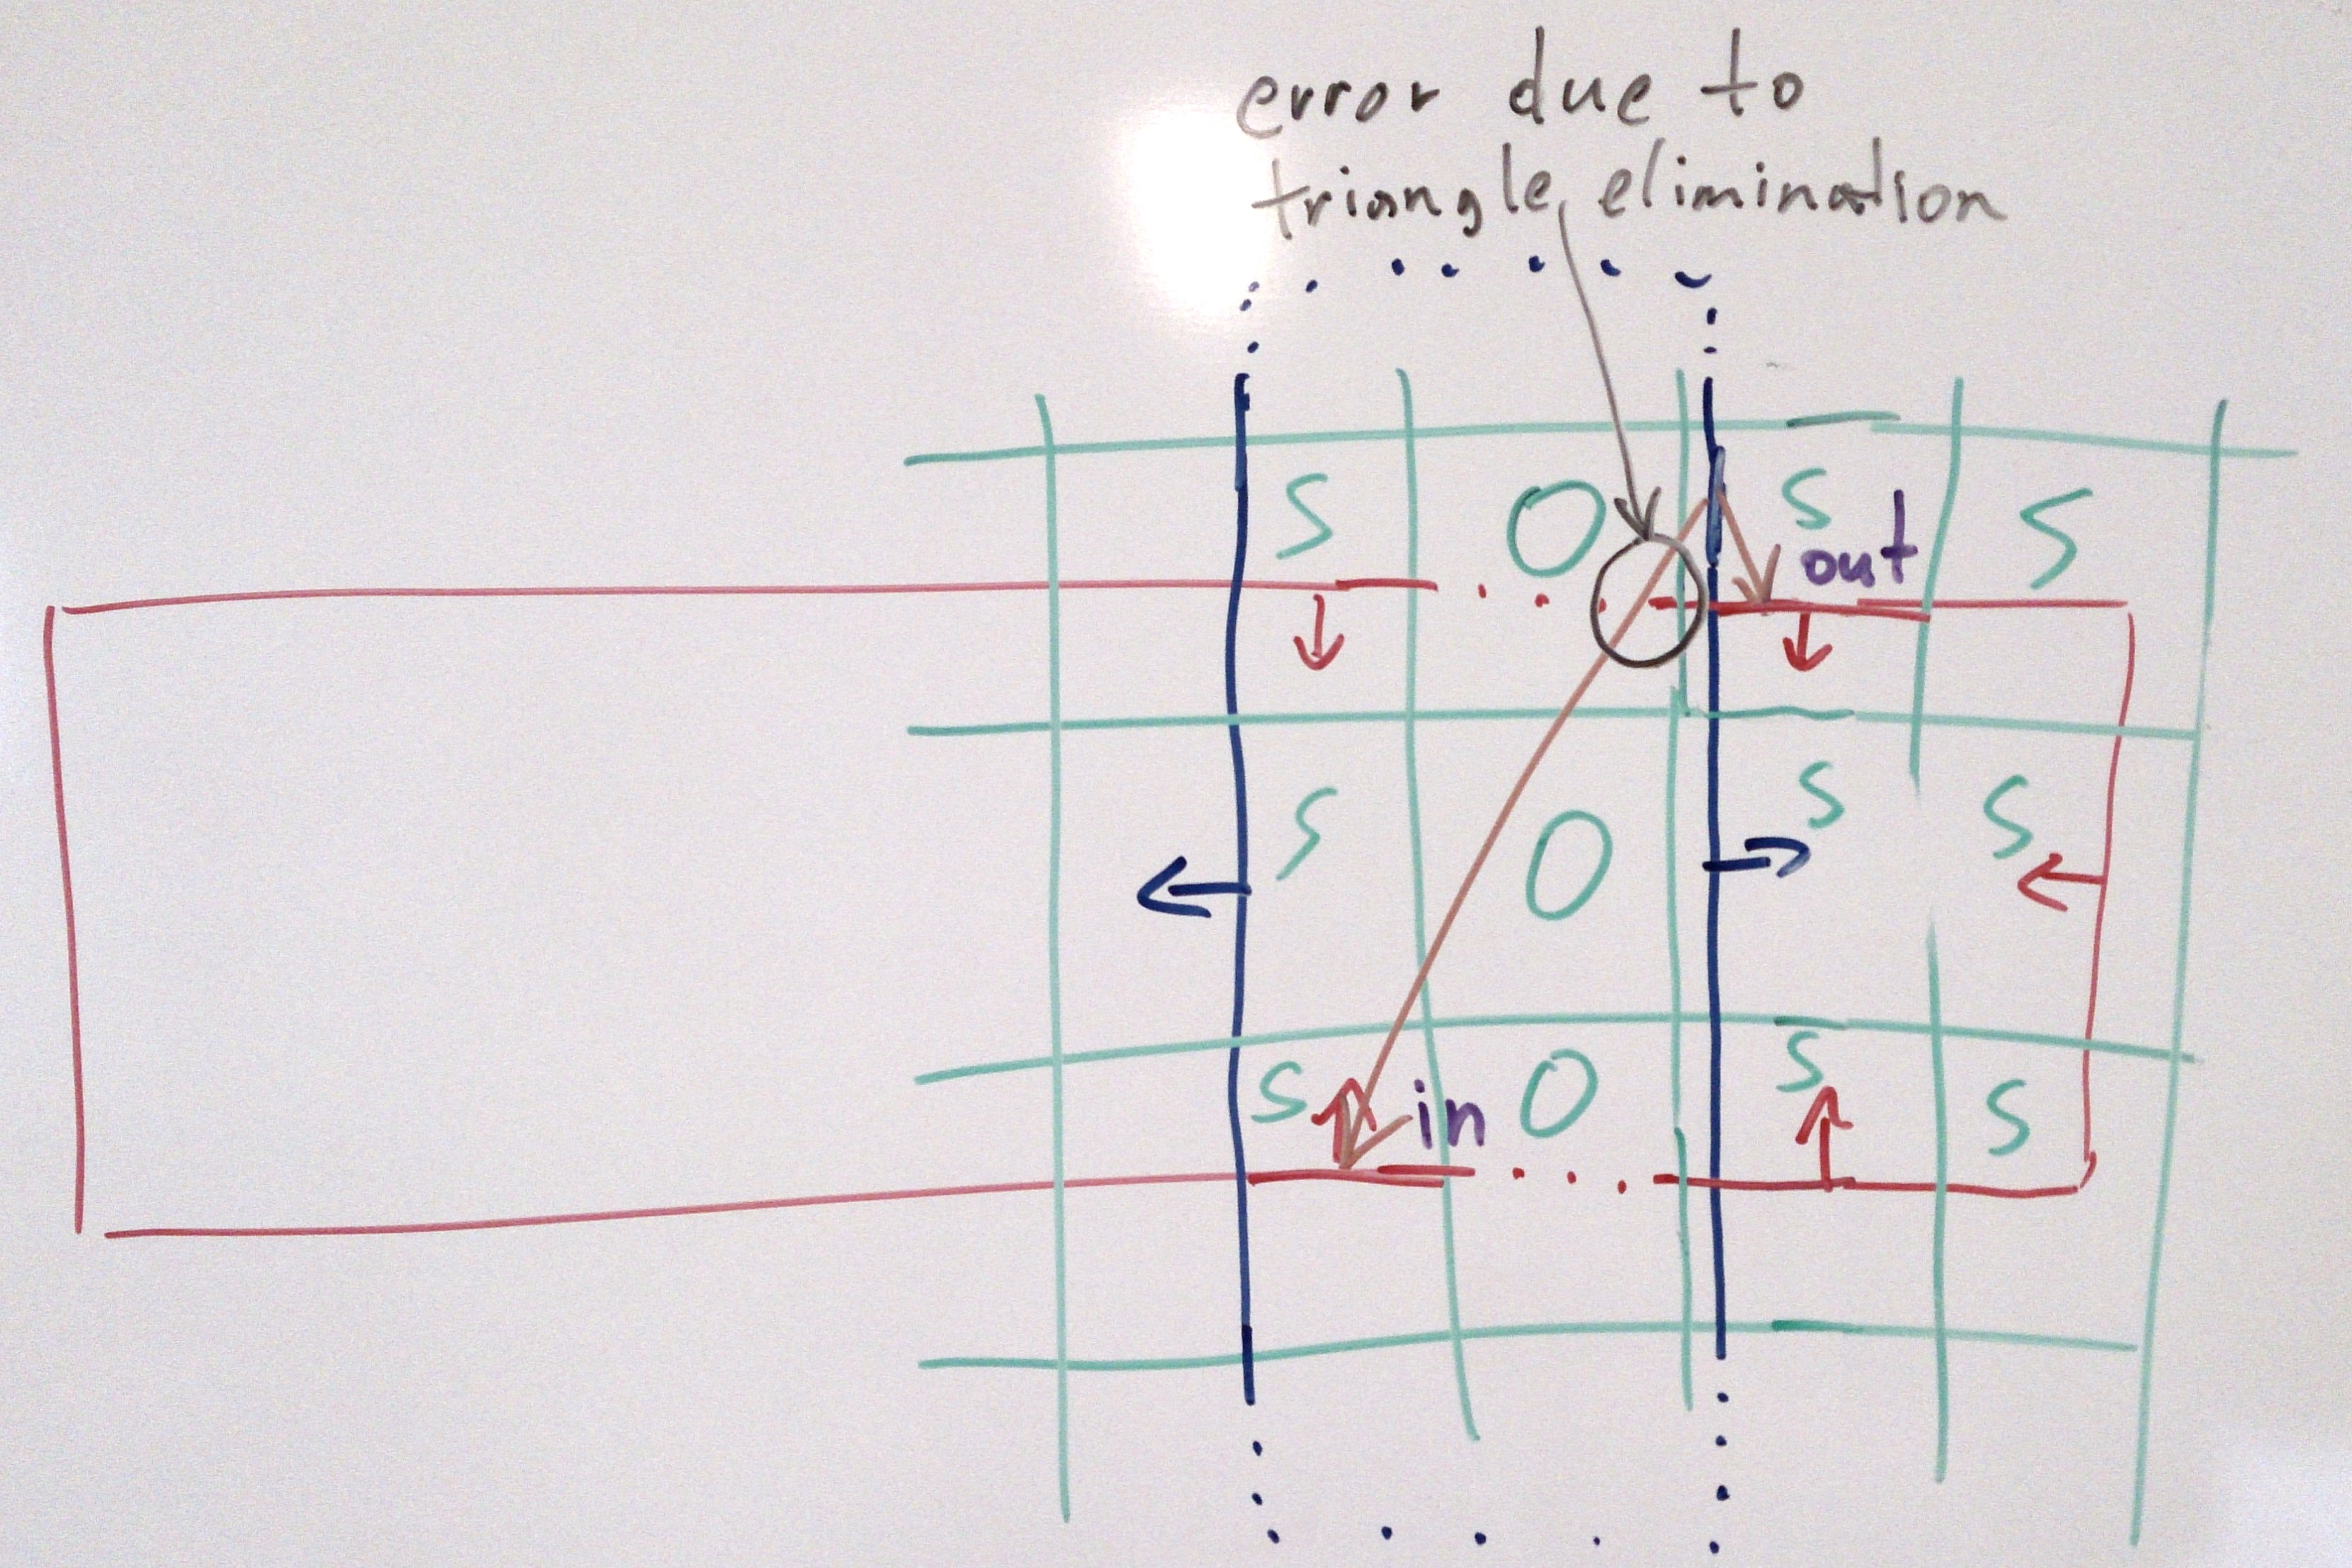 error due to
triangle elimination
S O S S
out
S O S S
S O S S
in